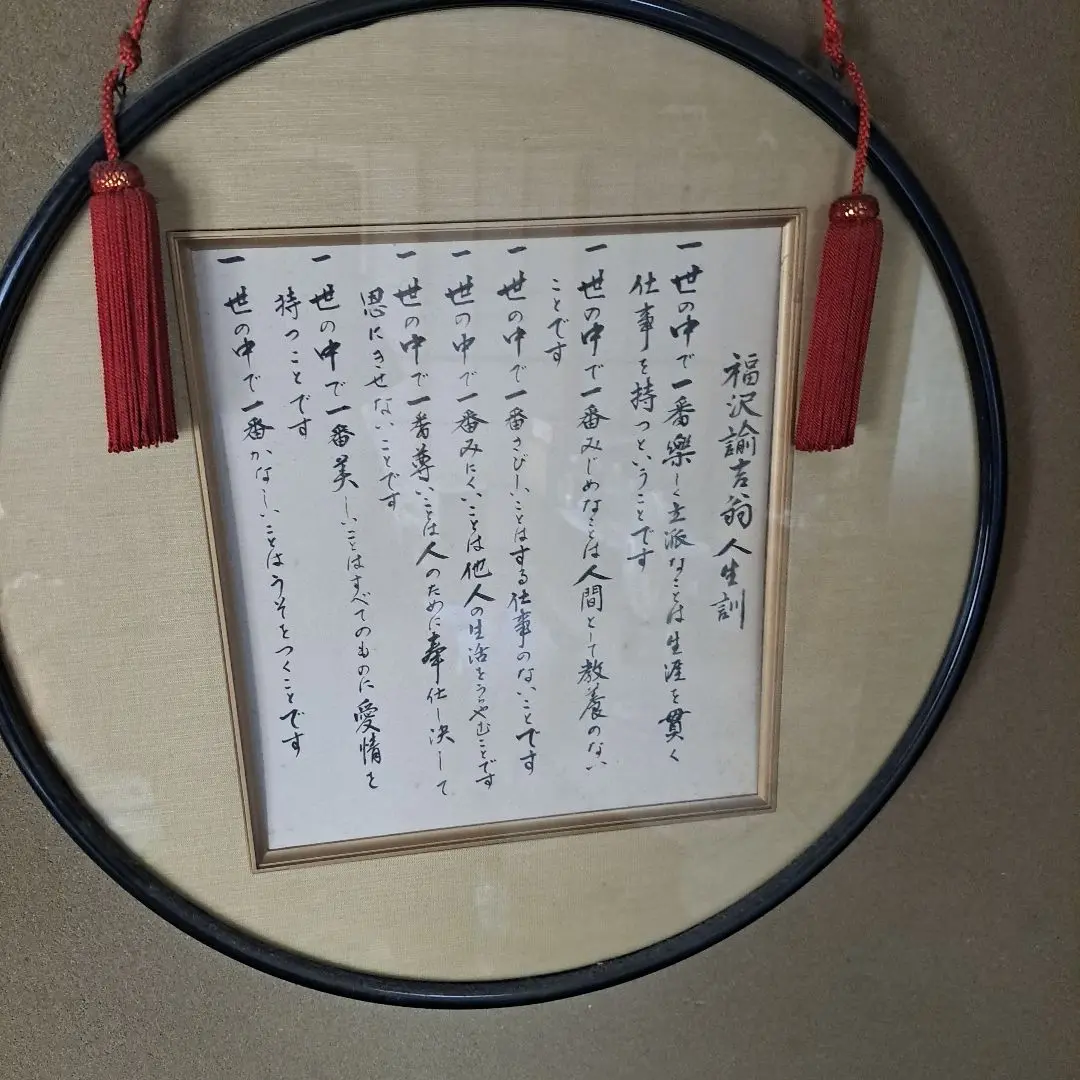 福沢諭吉翁人生訓
一世の中で一番楽しく立派なことは生涯を貫く
仕事を持つということです
一世の中で一番みじめなことは人間として教養のない
ことです
一世の中で一番さびしいことはする仕事のないことです
一世の中で一番みにくいことは他人の生活をうらやむことです
一世の中で一番尊いことは人のために奉仕し決して
恩にきせないことです
一世の中で一番美しいことはすべてのものに愛情を
持つことです
一世の中で一番かなしいことはうそをつくことです